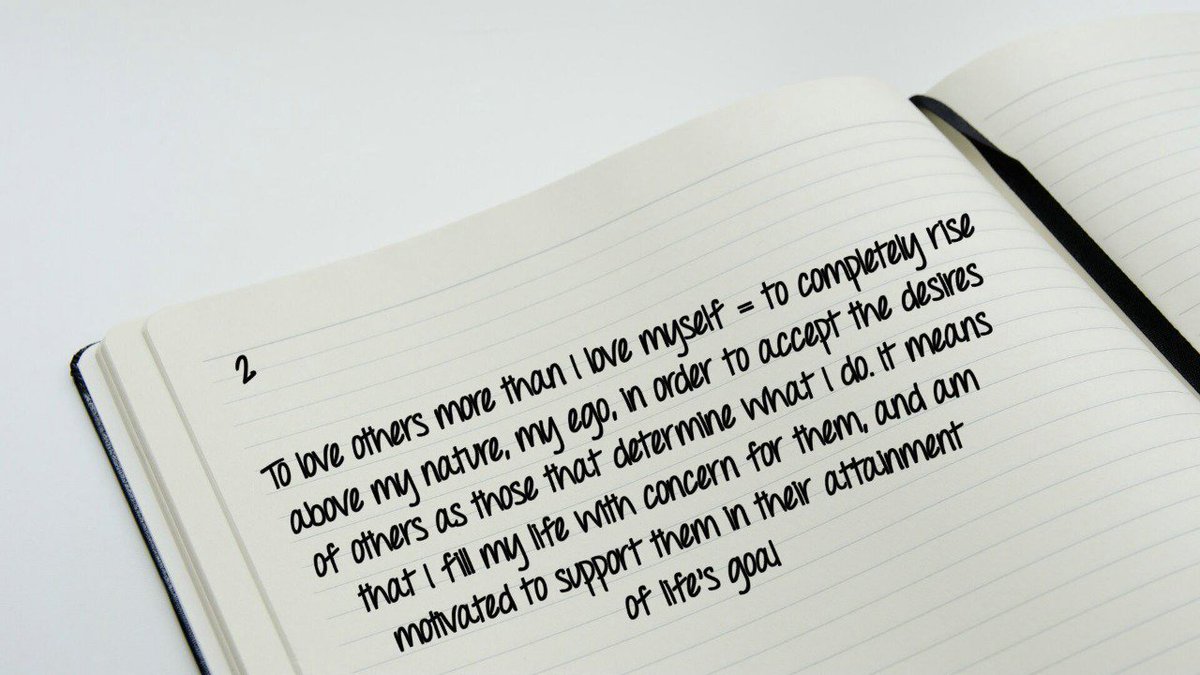 2
To love others more than I love myself = to completely rise
above my nature, my ego, in order to accept the desires
of others as those that determine what I do. It means
that I fill my life with concern for them, and am
motivated to support them in their attainment
of life's goal